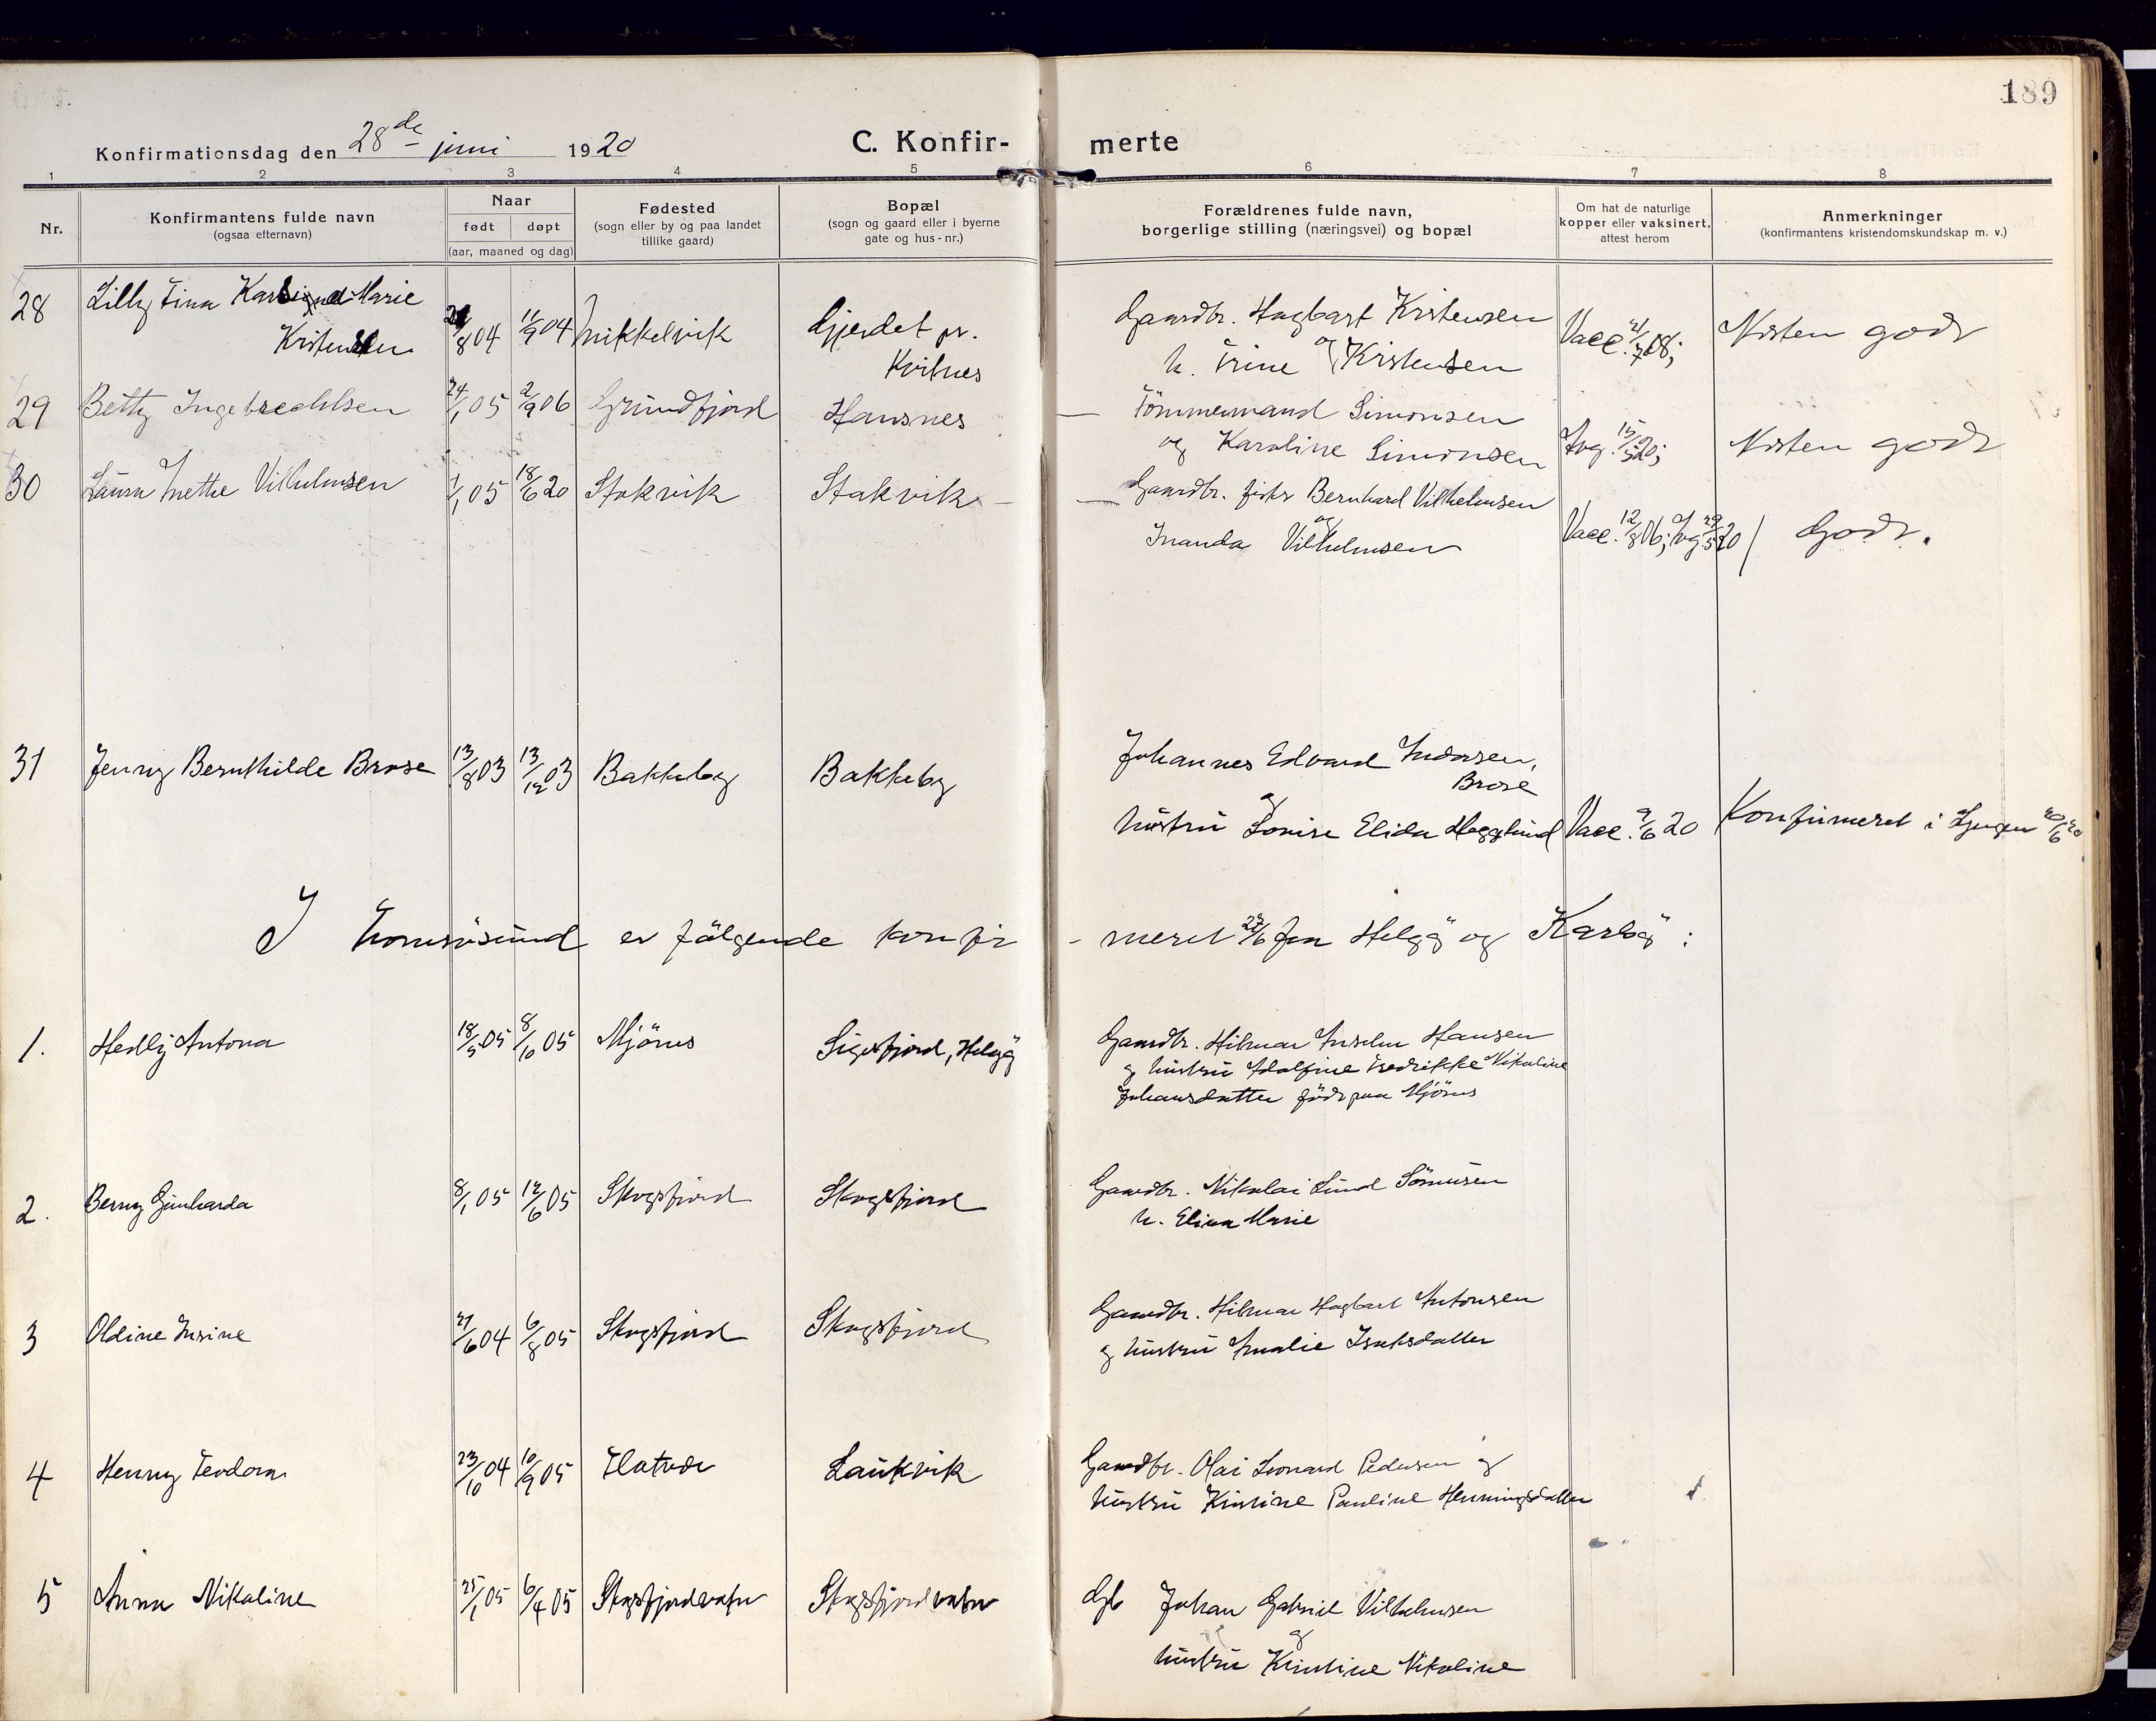 189
Konfirmationsdag den 28de juni 1920
C. Konfir- merte
1 2 3 4 5 6 7 8
Nr.
Konfirmantens fulde navn
(ogsaa efternavn)
Naar
født døpt
(aar, maaned og dag)
Fødested
(sogn eller by og paa landet
tillike gaard)
Bopæl
(sogn og gaard eller i byerne
gate og hus-nr.)
Forældrenes fulde navn,
borgerlige stilling (næringsvei) og bopæl
Om hat de naturlige
kopper eller vaksinert,
attest herom
Anmerkninger
(konfirmantens kristendomskundskap m. v.)
28 Lilly Tina Marie
Kristensen /8 04 11/9 04 Mikkelvik Gjerdet pr.
Kvitnes
Gaardbr. Hagbart Kristensen
og
h. Trine Kristensen
Vacc. 21/7 08; Næsten godt
29 Betty Ingebrechtsen 24/1 05 2/9 06 Grundfjord Hansnes
— Tömmermand Simonsen
og Karoline Simonsen
Avg. 15/5 20; Næsten godt
30 Laura Mettie Vilhelmsen 1/1 05 18/6 20 Stakvik Stakvik —
— Gaardbr. fisker Bernhard Vilhelmsen
og
Amanda Vilhelmsen
Vacc. 12/8 06; Avg 29/5 20 / Godt.
31 Jenny Bernthilde Brose 13/8 03 13/12 03 Bakkeby Bakkeby
Johannes Edvard Andersen,
Brose
og
hustru Lovise Elida Hegglund Vacc. 9/6 20 Konfirmeret i Lyngen 20/6 20
I Tromsösund er fölgende konfir - meret 27/6 fra Helgö og Karlsö:
1. Hedly Antona 18/5 05 8/10 05 Mjönes Sigerfjord, Helgö
Gaardbr. Hilmar Anselm Hansen
og hustru Adolfine Fredrikke Nikoline
Johansdatter född paa Mjönes
2. Berny Gunharda 8/1 05 12/6 05 Skogsfjord Skogsfjord
Gaardbr. Nikolai Lund
h. Elina Marie
3 Oldine Ansine 27/6 04 6/8 05 Skogsfjord Skogsfjord
Gaardbr. Hilmar Hagbart Antonsen
og hustru Amalie Isaksdatter
4 Henny Teodora 23/10 04 10/9 05 Flatvær Laukvik
Gaardbr. Olai Leonard Pedersen og
hustru Kristine Pauline Henningsdatter
5 Anna Nikoline 25/1 05 6/4 05 Skogsfjordvatn Skogsfjordvatn
Gb Johan Gabriel Vilhelmsen
og
hustru Kristine Nikoline